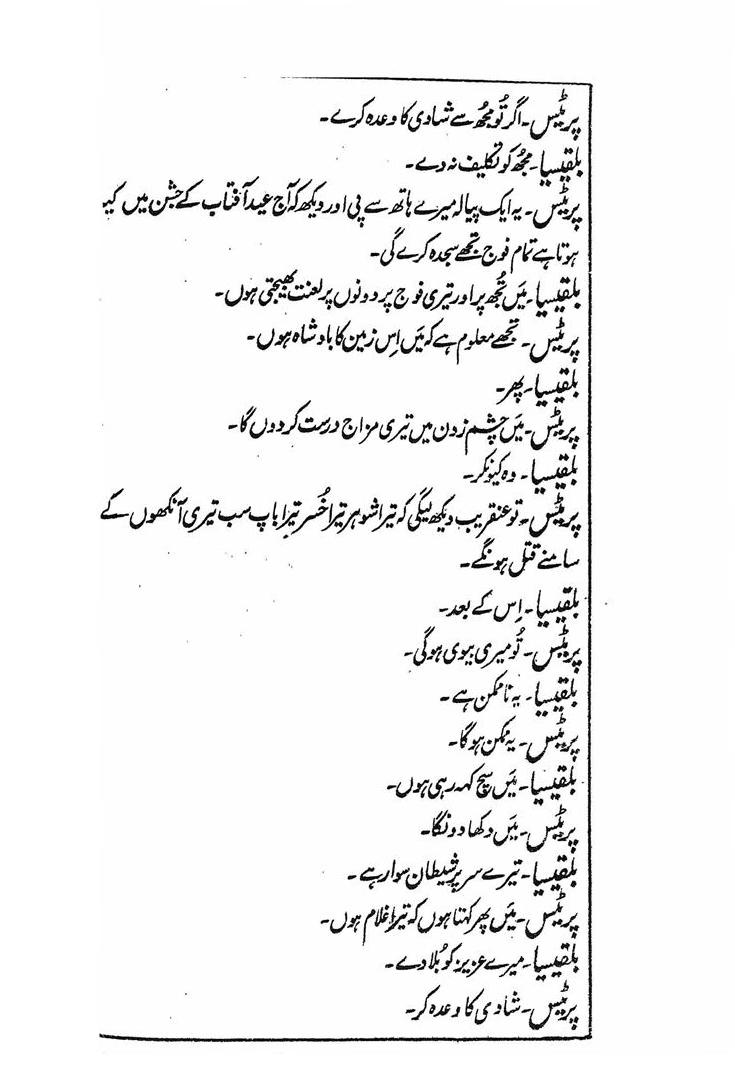 پرٹیس۔ اگر تُو مجھ سے شادی کا وعدہ کرے۔
بلقیسیا۔ مجھ کو تکلیف نہ دے۔
پرٹیس۔ یہ ایک پیالہ میرے ہاتھ سے پی اور دیکھ کہ آج عید آفتاب کے جشن میں کیہ
ہوتا ہے تمام فوج تجھے سجدہ کرے گی۔
بلقیسیا۔ مَیں تُجھ پر اور تیری فوج پر دونوں پر لعنت بھیجتی ہوں۔
پرٹیس۔ تجھے معلوم ہے کہ مَیں اِس زمین کا بادشاہ ہوں۔
بلقیسیا۔ پھر۔
پرٹیس۔ مَیں چشم زدن میں تیری مزاج درست کر دوں گا۔
بلقیسیا۔ وہ کیونکر۔
پرٹیس۔ تو عنقریب دیکھ لیگی کہ تیرا شوہر تیرا خُسر تیرا باپ سب تیری آنکھوں کے
سامنے قتل ہونگے۔
بلقیسیا۔ اِس کے بعد۔
پرٹیس۔ تُو میری بیوی ہوگی۔
بلقیسیا۔ یہ ناممکن ہے۔
پرٹیس۔ یہ ممکن ہوگا۔
بلقیسیا۔ مَیں سچ کہہ رہی ہوں۔
پرٹیس۔ مَیں دکھا دونگا۔
بلقیسیا۔ تیرے سر پر شیطان سوار ہے۔
پرٹیس۔ مَیں پھر کہتا ہوں کہ تیرا غلام ہوں۔
بلقیسیا۔ میرے عزیز کو بُلا دے۔
پرٹیس۔ شادی کا وعدہ کر۔